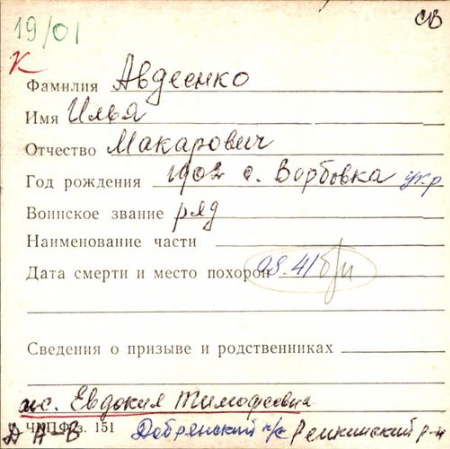 19/01 СВ
К
Фамилия Авдеенко
Имя Илья
Отчество Макарович
Год рождения 1902 с. Ворбовка укр
Воинское звание ряд
Наименование части
Дата смерти и место похорон 08.41 б/и
Сведения о призыве и родственниках
ж. Евдокия Тимофеевна
з. 151
Добрянский п/с Репкинский р-н